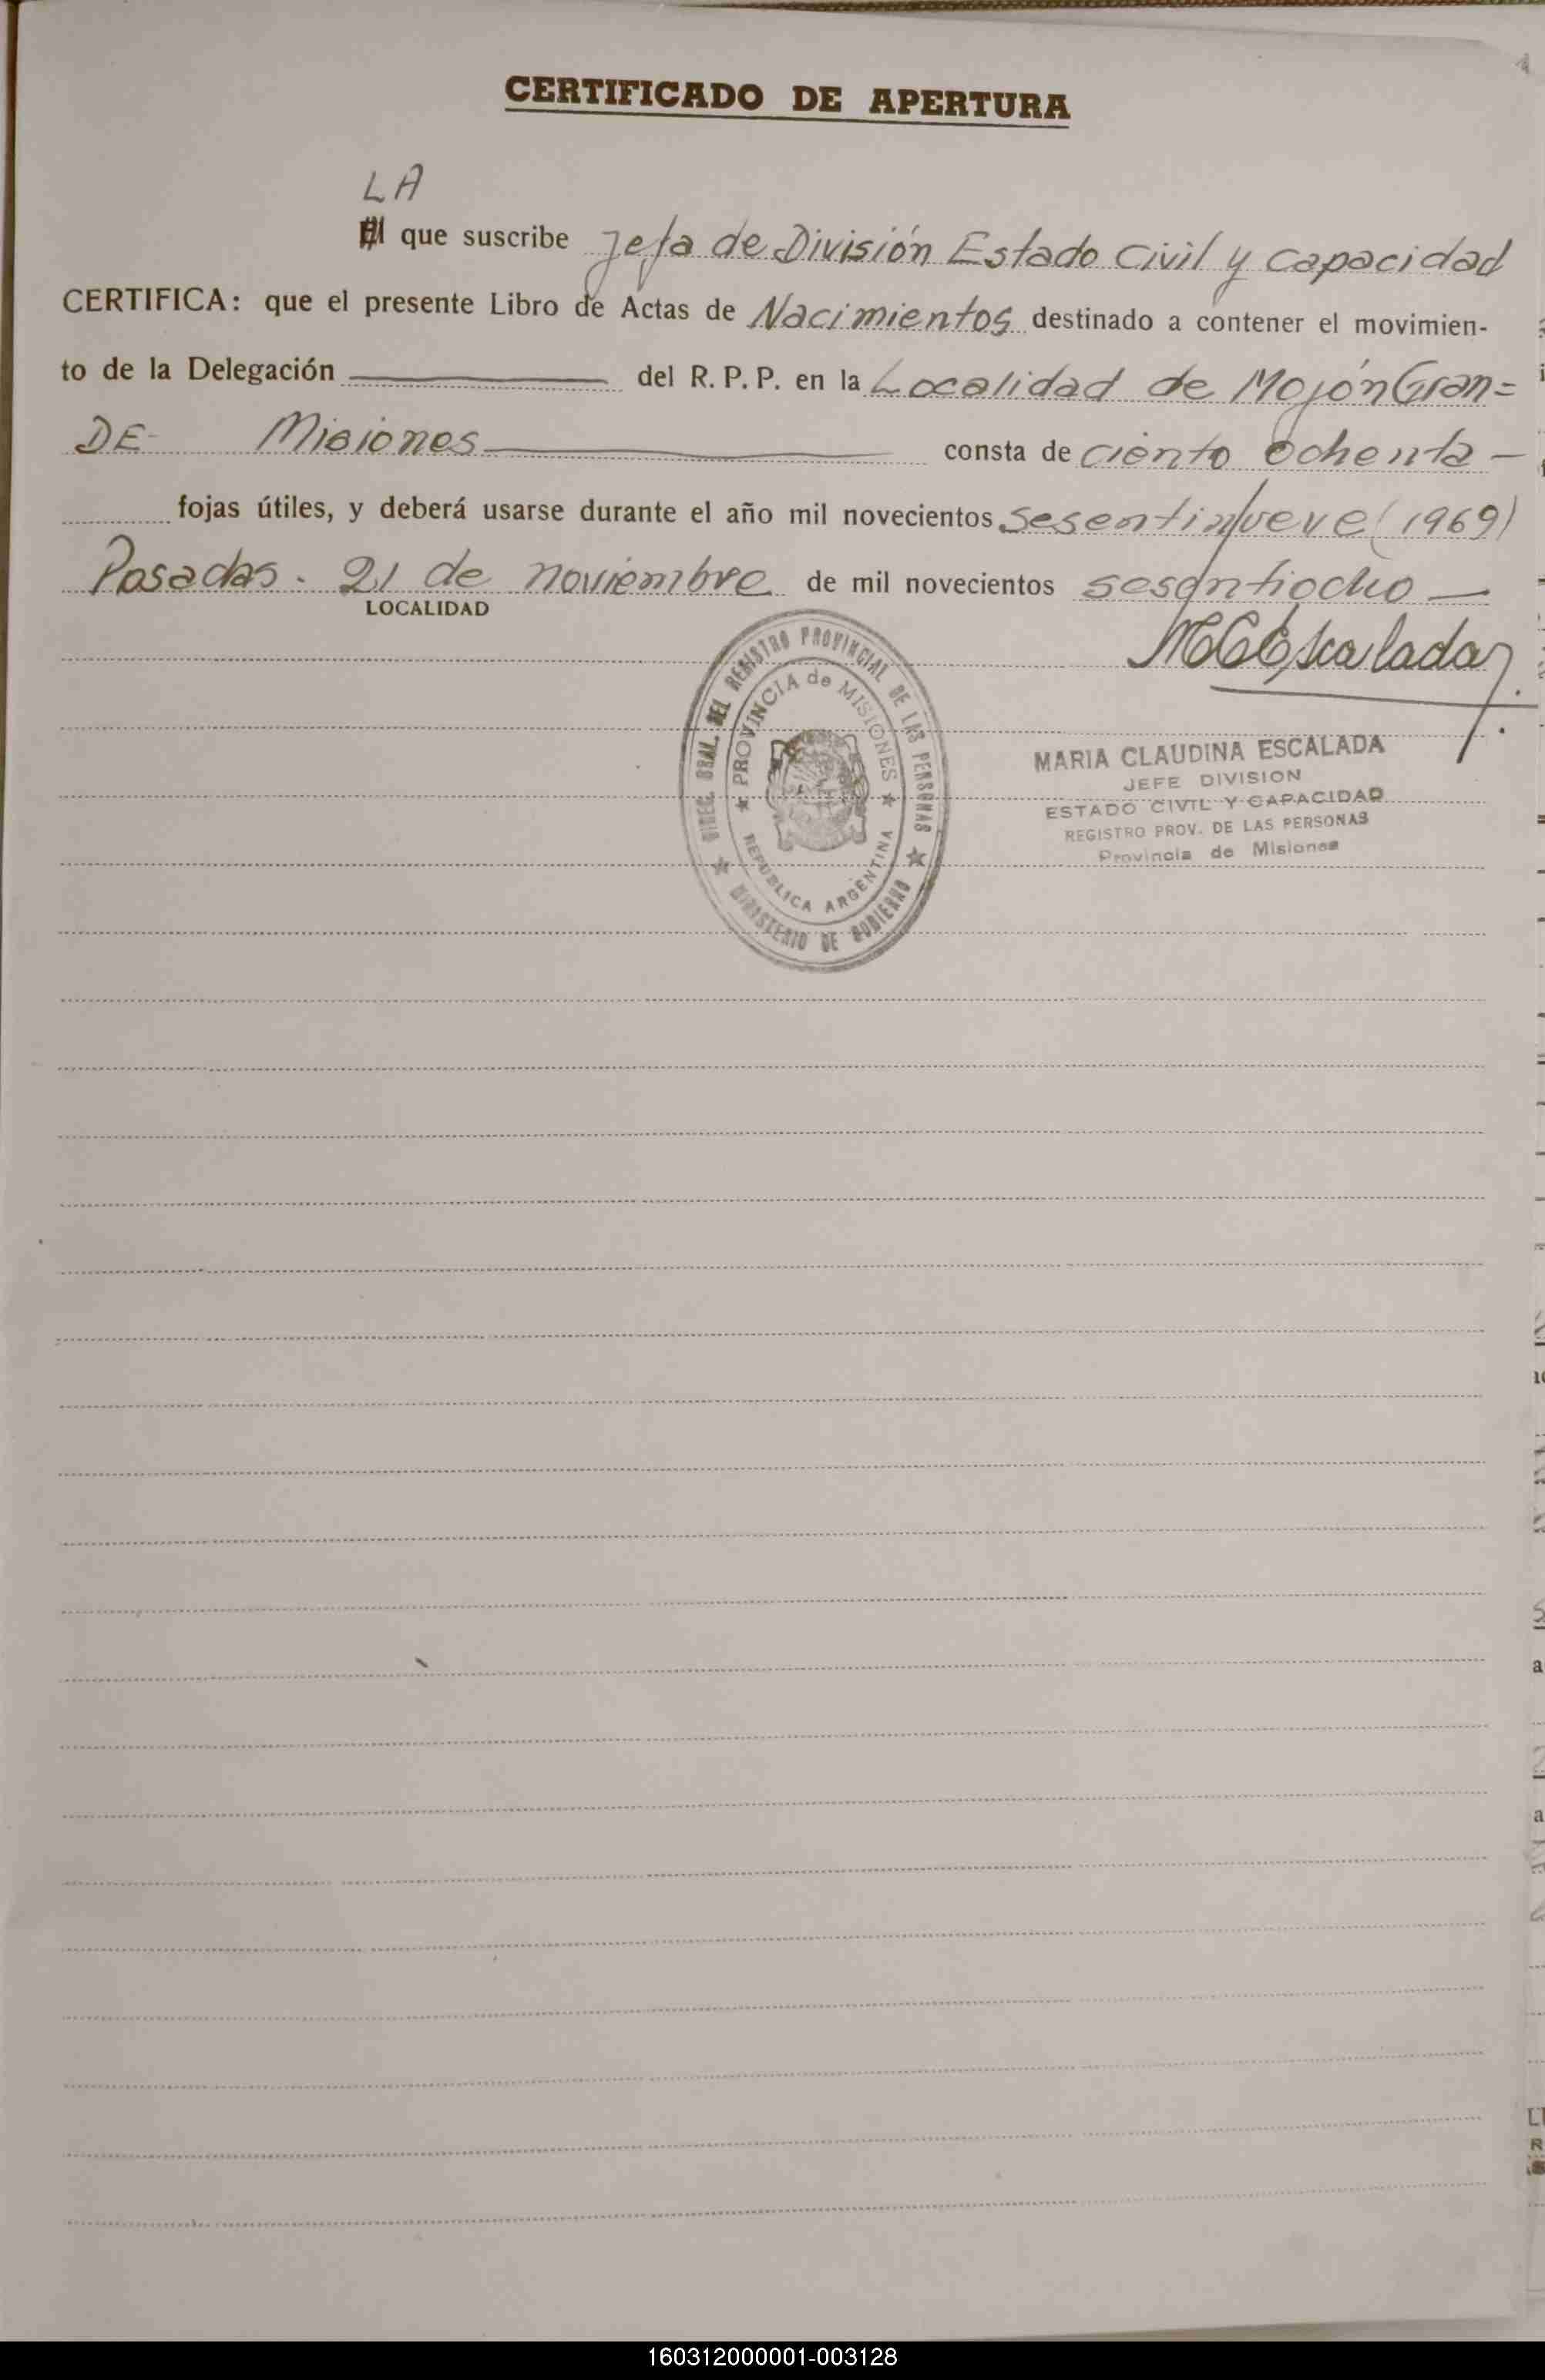 CERTIFICADO DE APERTURA
LA
El que suscribe Jefa de División Estado Civil y Capacidad
CERTIFICA: que el presente Libro de Actas de Nacimientos destinado a contener el movimien-
to de la Delegación del R. P. P. en la Localidad de Mojón Gran=
DE- Misiones consta de ciento ochenta -
fojas útiles, y deberá usarse durante el año mil novecientos sesentinueve (1969)
Posadas. 21 de noviembre de mil novecientos sesentiocho —
LOCALIDAD
MCEscalada
DIREC. GRAL. DEL REGISTRO PROVINCIAL DE LAS PERSONAS
PROVINCIA de MISIONES
REPUBLICA ARGENTINA
MINISTERIO DE GOBIERNO
MARIA CLAUDINA ESCALADA
JEFE DIVISION
ESTADO CIVIL Y CAPACIDAD
REGISTRO PROV. DE LAS PERSONAS
Provincia de Misiones
160312000001-003128